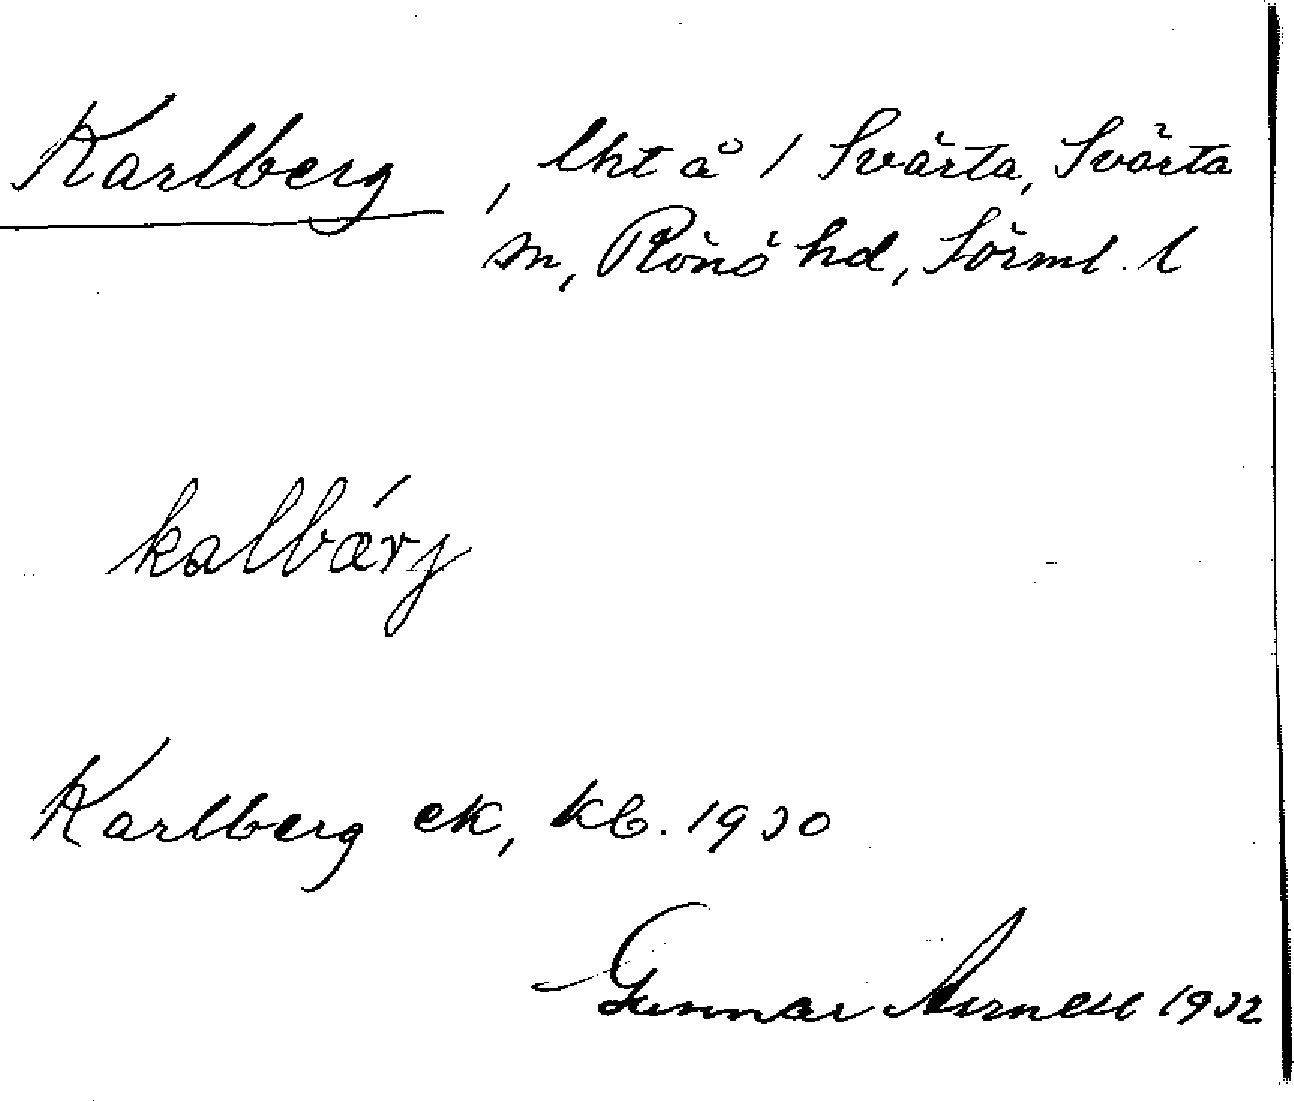 Karlberg, lht å 1 Svärta, Svärta
sn, Rönö hd, Sörml. l
kalbærj
Karlberg ek, kb. 1930
Gunnar Arnell 1932